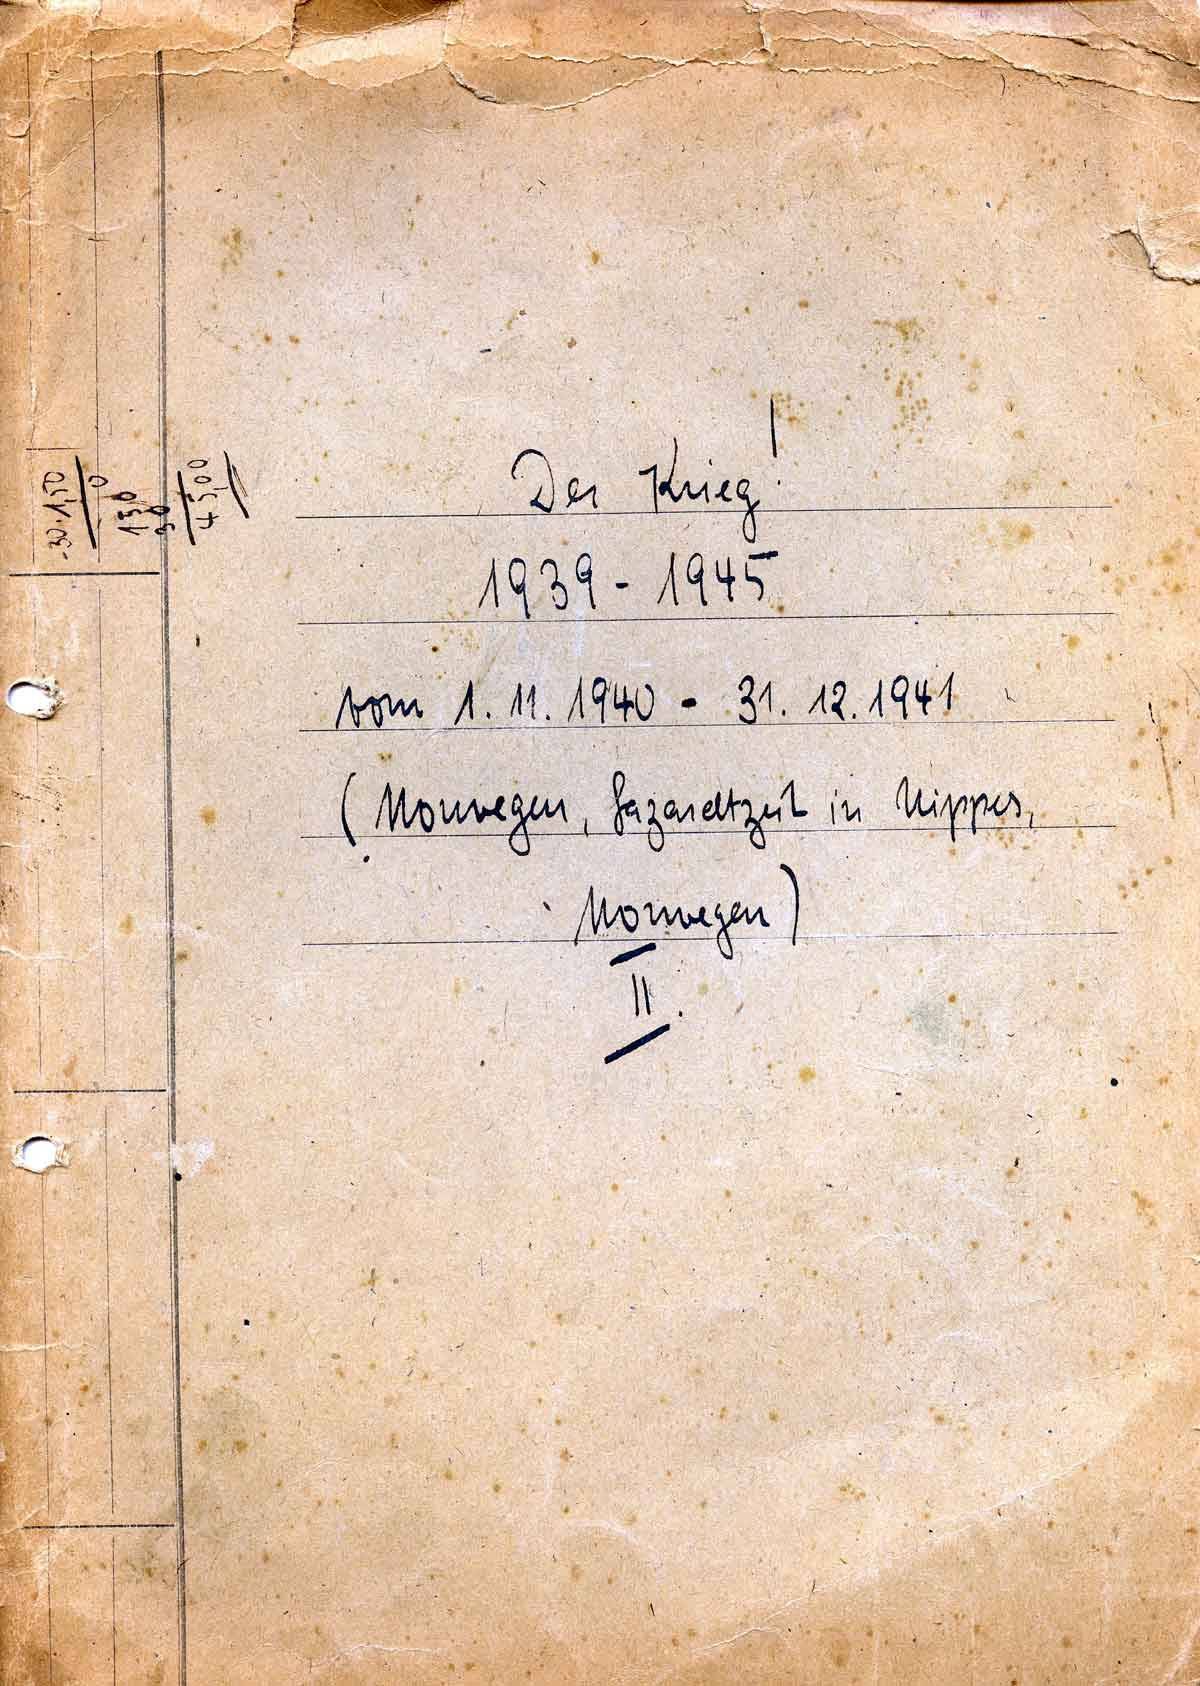 Der Krieg!
1939 - 1945
vom 1. 11. 1940 - 31. 12. 1941
(Norwegen, Lazarettzeit in Nippes,
Norwegen)
II.
30 · 1,50
0
150
30
45,00